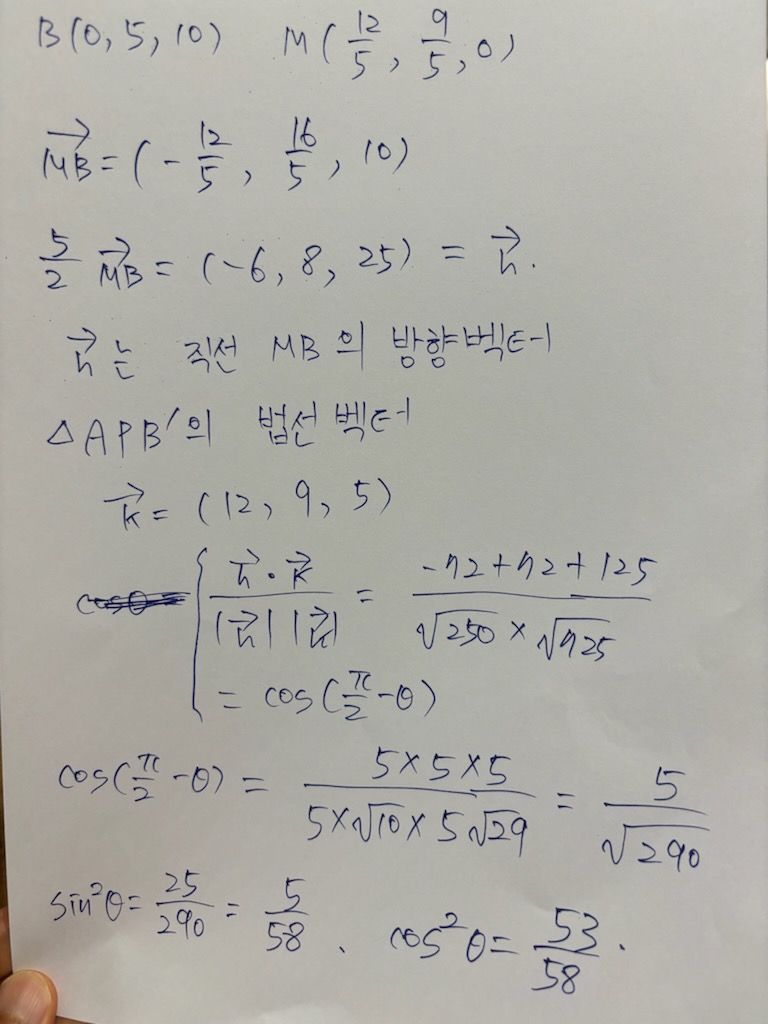 B(0, 5, 10)   M(12/5, 9/5, 0)
→MB = (-12/5, 16/5, 10)
5/2 →MB = (-6, 8, 25) = →h.
→h는 직선 MB의 방향벡터
△APB'의 법선벡터
→k = (12, 9, 5)
→h·→k / |→h||→k| = -72+72+125 / √250 × √725
= cos(π/2 - θ)
cos(π/2 - θ) = 5×5×5 / 5×√10×5√29 = 5/√290
sin²θ = 25/290 = 5/58 .   cos²θ = 53/58 .